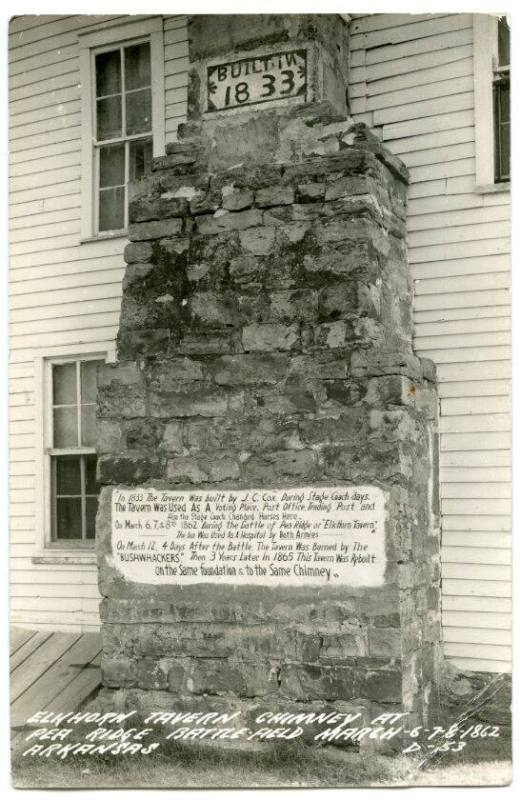 BUILT IN
1833
"In 1833 The Tavern Was built by J. C. Cox. During Stage Coach days.
The Tavern Was Used As A Voting Place, Post Office, Trading Post and
Also the Stage Coach Changed Horses Here..
On March 6, 7, & 8th 1862 During the Battle of Pea Ridge or "Elk Horn Tavern",
The Inn Was Used As A Hospital by Both Armies
On March 12, 4 Days After the Battle, The Tavern Was Burned by The
"BUSHWHACKERS" Then 3 Years Later in 1865 This Tavern Was Rebuilt
on the Same foundation & to the Same Chimney..
ELKHORN TAVERN CHIMNEY AT
PEA RIDGE BATTLE-FIELD MARCH-6-7-8-1862
ARKANSAS D-153